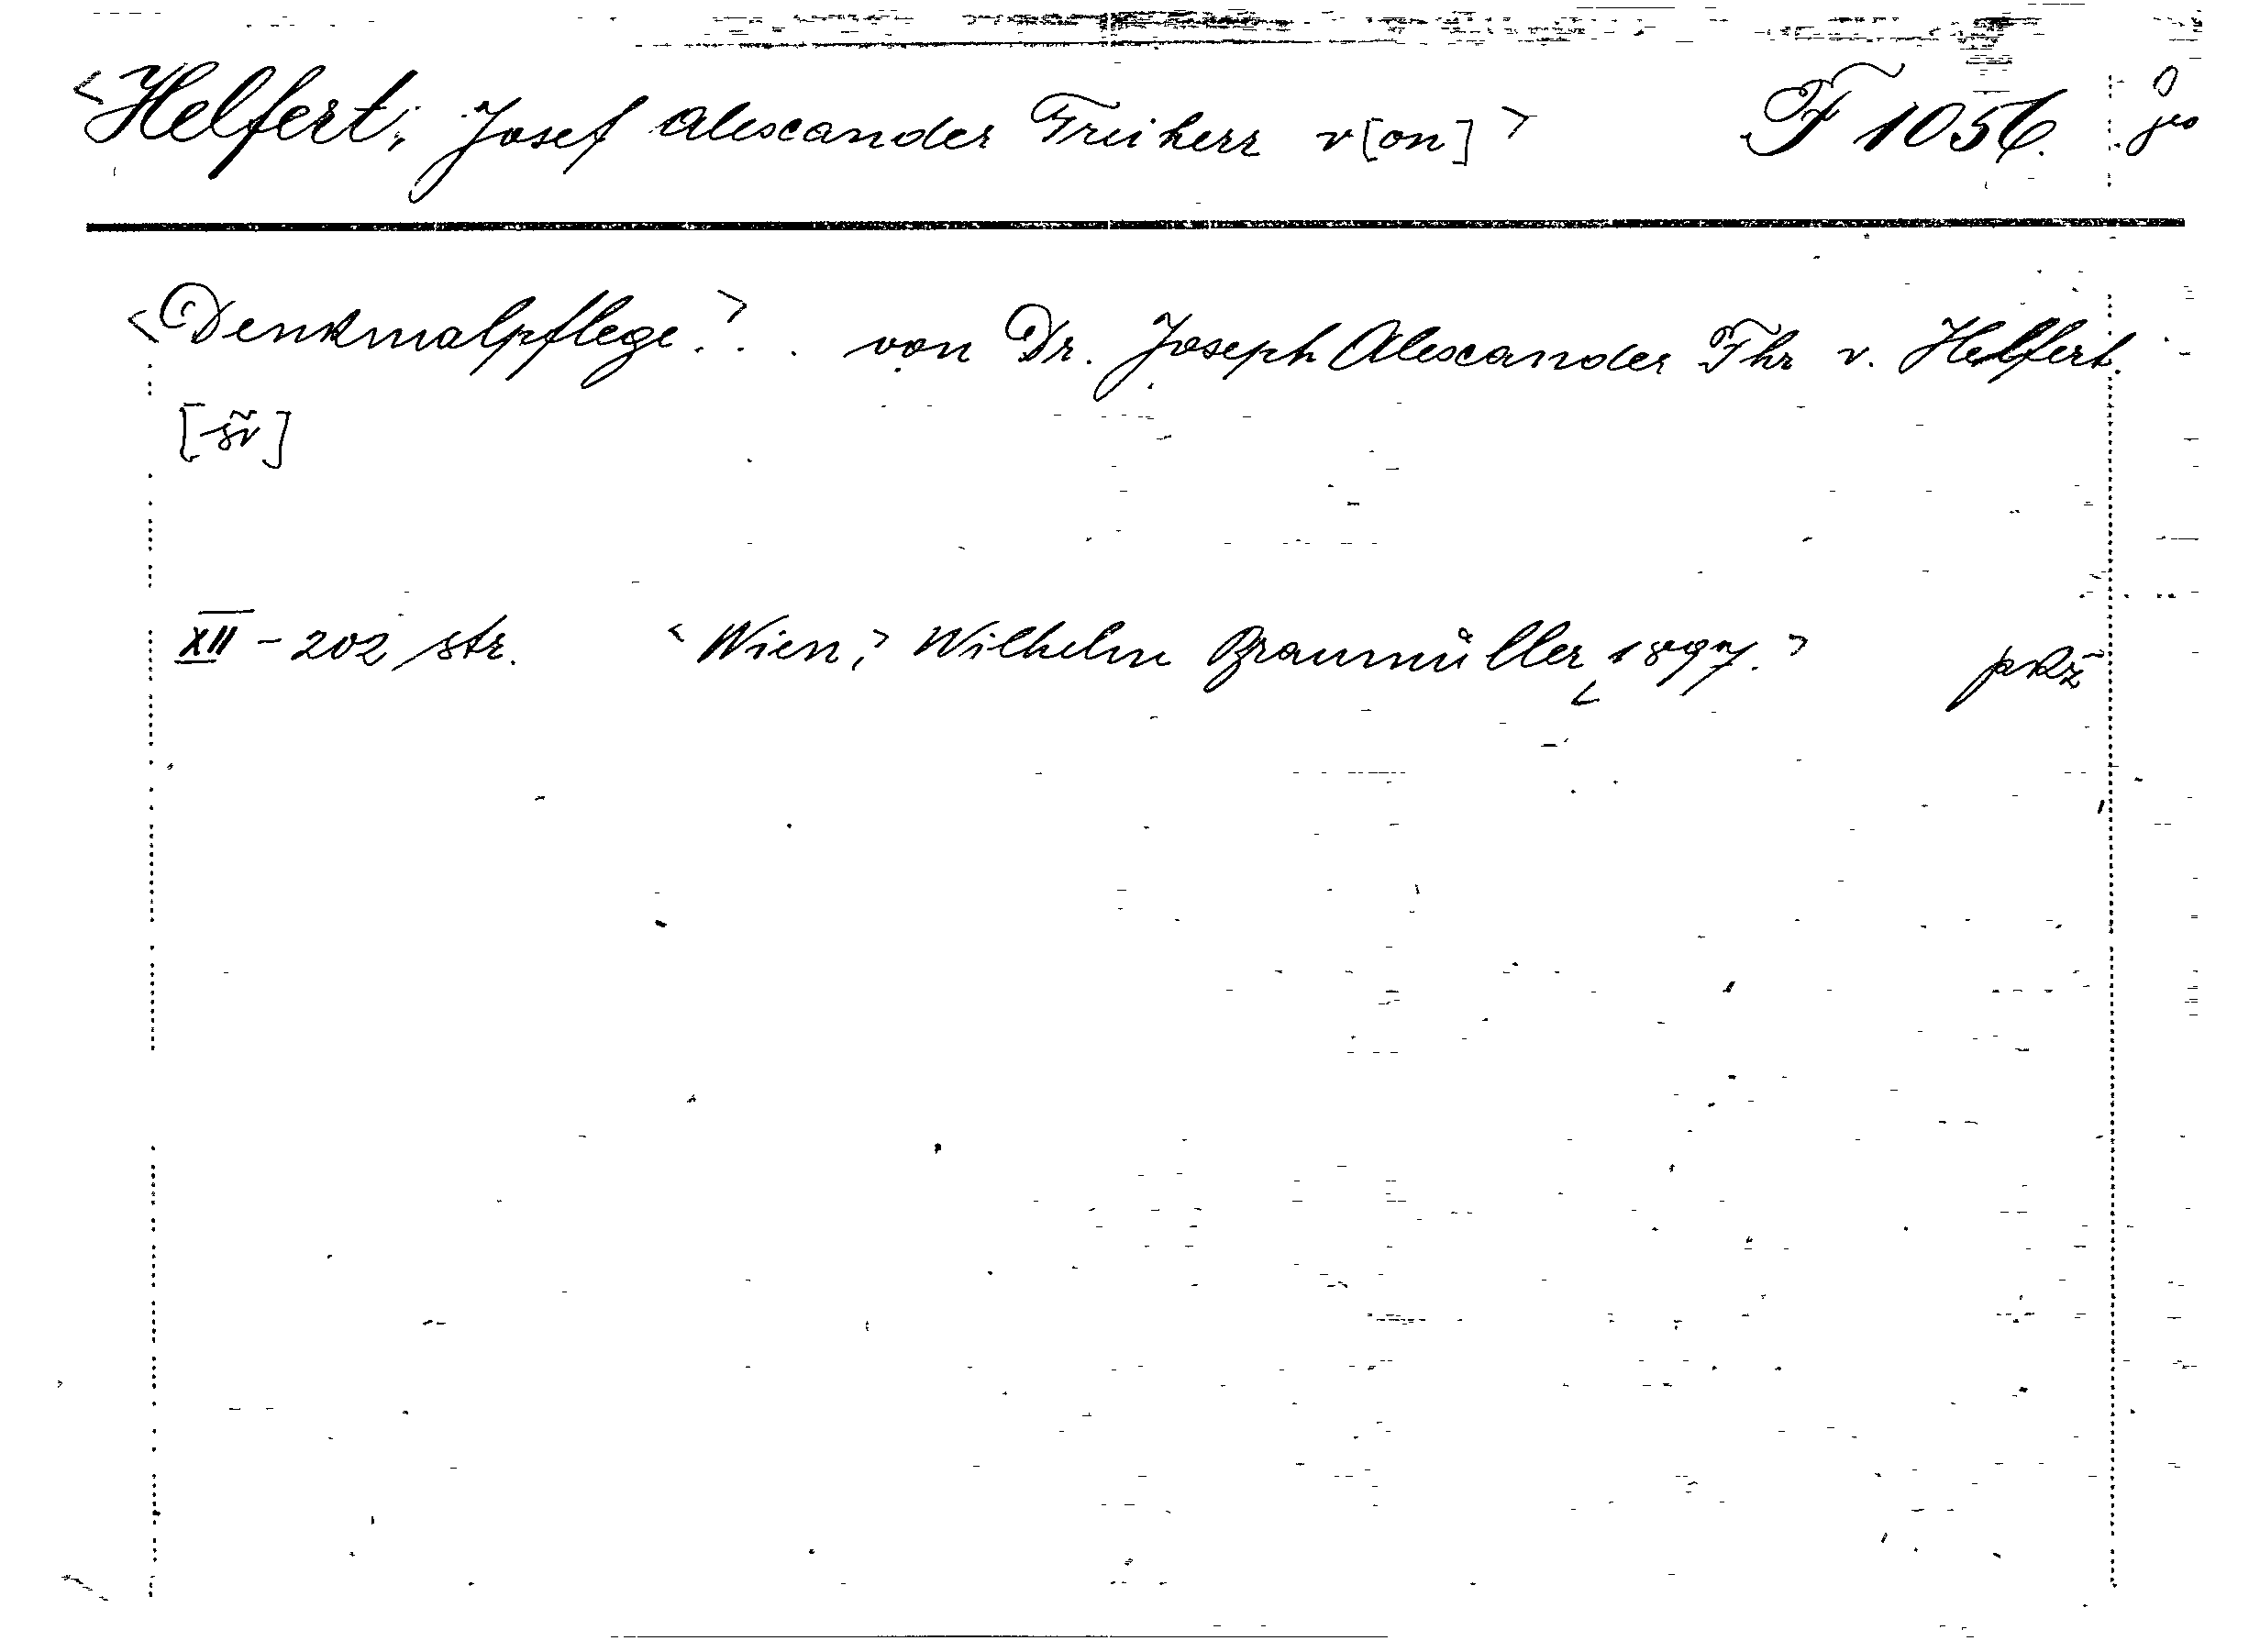 <Helfert, Josef Alexander Freiherr v[on]> F 1056.
<Denkmalpflege>... von Dr. Joseph Alexander Fhr v. Helfert.
XII - 202 str. <Wien,> Wilhelm Braumüller, <1897.>